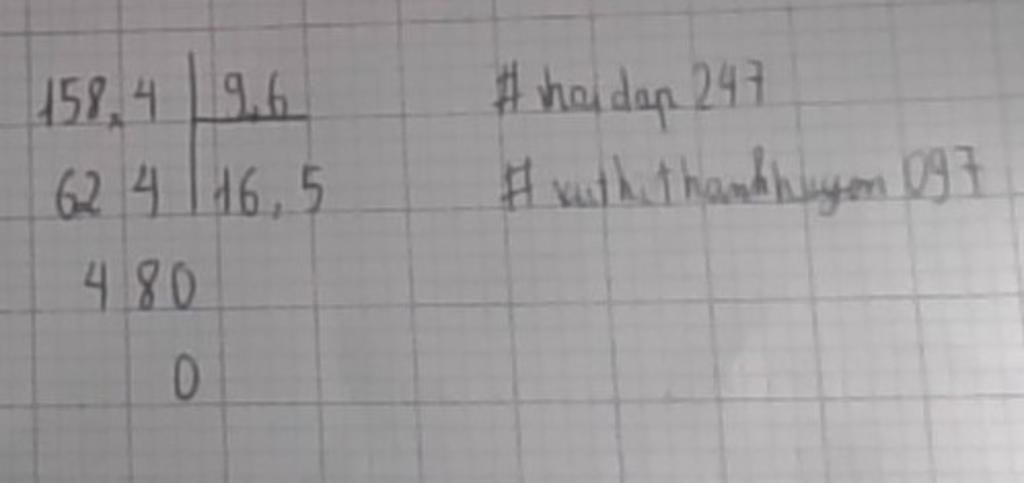 158,4 9,6 # hoidap 247
62 4 16,5 # vuthithanhhuyen 097
4 80
0